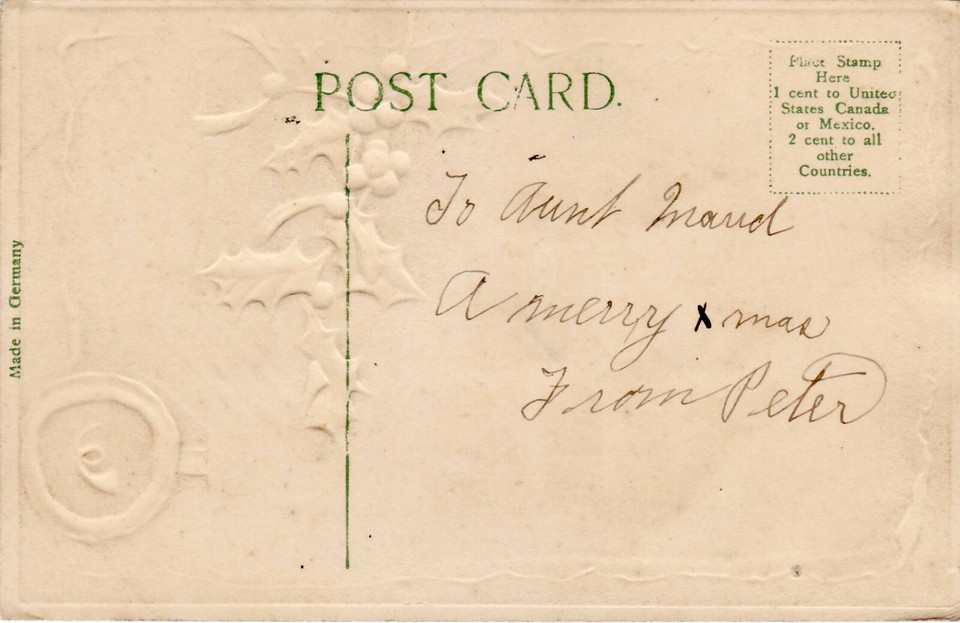 POST CARD.
Place Stamp
Here
1 cent to United
States Canada
or Mexico.
2 cent to all
other
Countries.
To Aunt Maud
A merry xmas
From Peter
Made in Germany